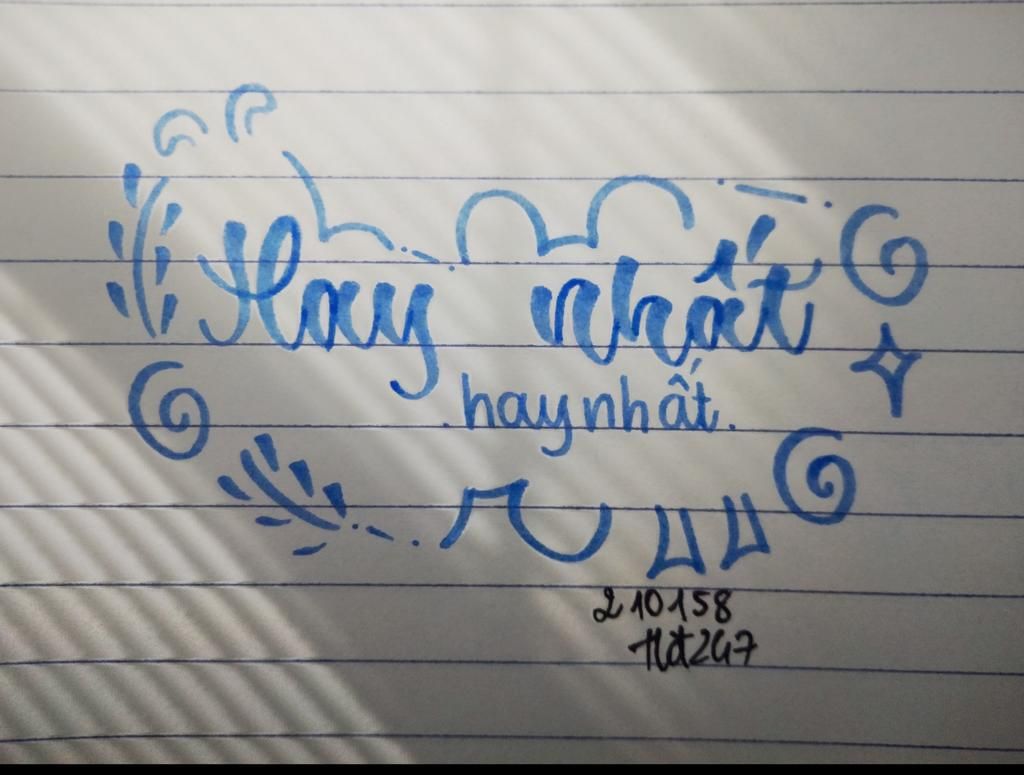 Hay nhất
.haynhất.
210158